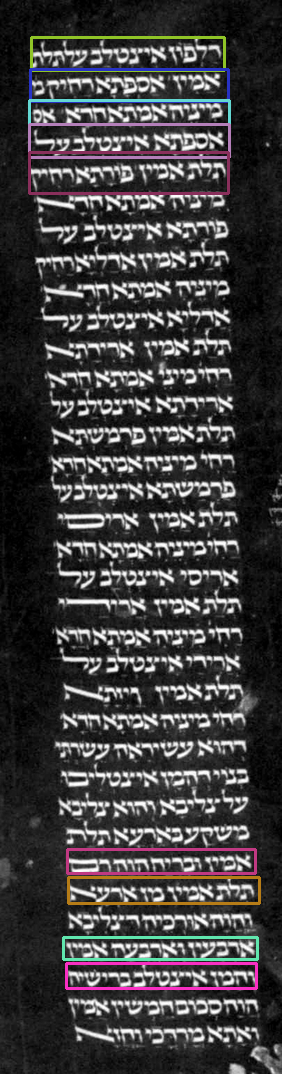 דלפון איצטלב על תלת
אמין אספתא רחיק מ
מיניה אמתא חדא אס
אספתא איצטלב על
תלת אמין פורתא רחיק
מיניה אמתא חדא
פורתא איצטלב על
תלת אמין אדליא רחיק
מיניה אמתא חדא
אדליא איצטלב על
תלת אמין ארידתא
רחי מיניה אמתא חדא
ארידתא איצטלב על
תלת אמין פרמשתא
רחי מיניה אמתא חדא
פרמשתא איצטלב על
תלת אמין אריסי
רחי מיניה אמתא חדא
אריסי איצטלב על
תלת אמין ארידי
רחי מיניה אמתא חדא
ארידי איצטלב על
תלת אמין ויזתא
רחי מיניה אמתא חדא
והוא עשיראה עשרתי
בנוי דהמן איצטליבו
על צליבא והוא צליבא
משקע בארעא תלת
אמין ובריה הוה רם
תלת אמין מן ארעא
והוה אורכיה דצליבא
ארבעין וארבעה אמין
והמן איצטלב ברישיה
הוה סכום חמשין אמין
ואתא מרדכי וחזא